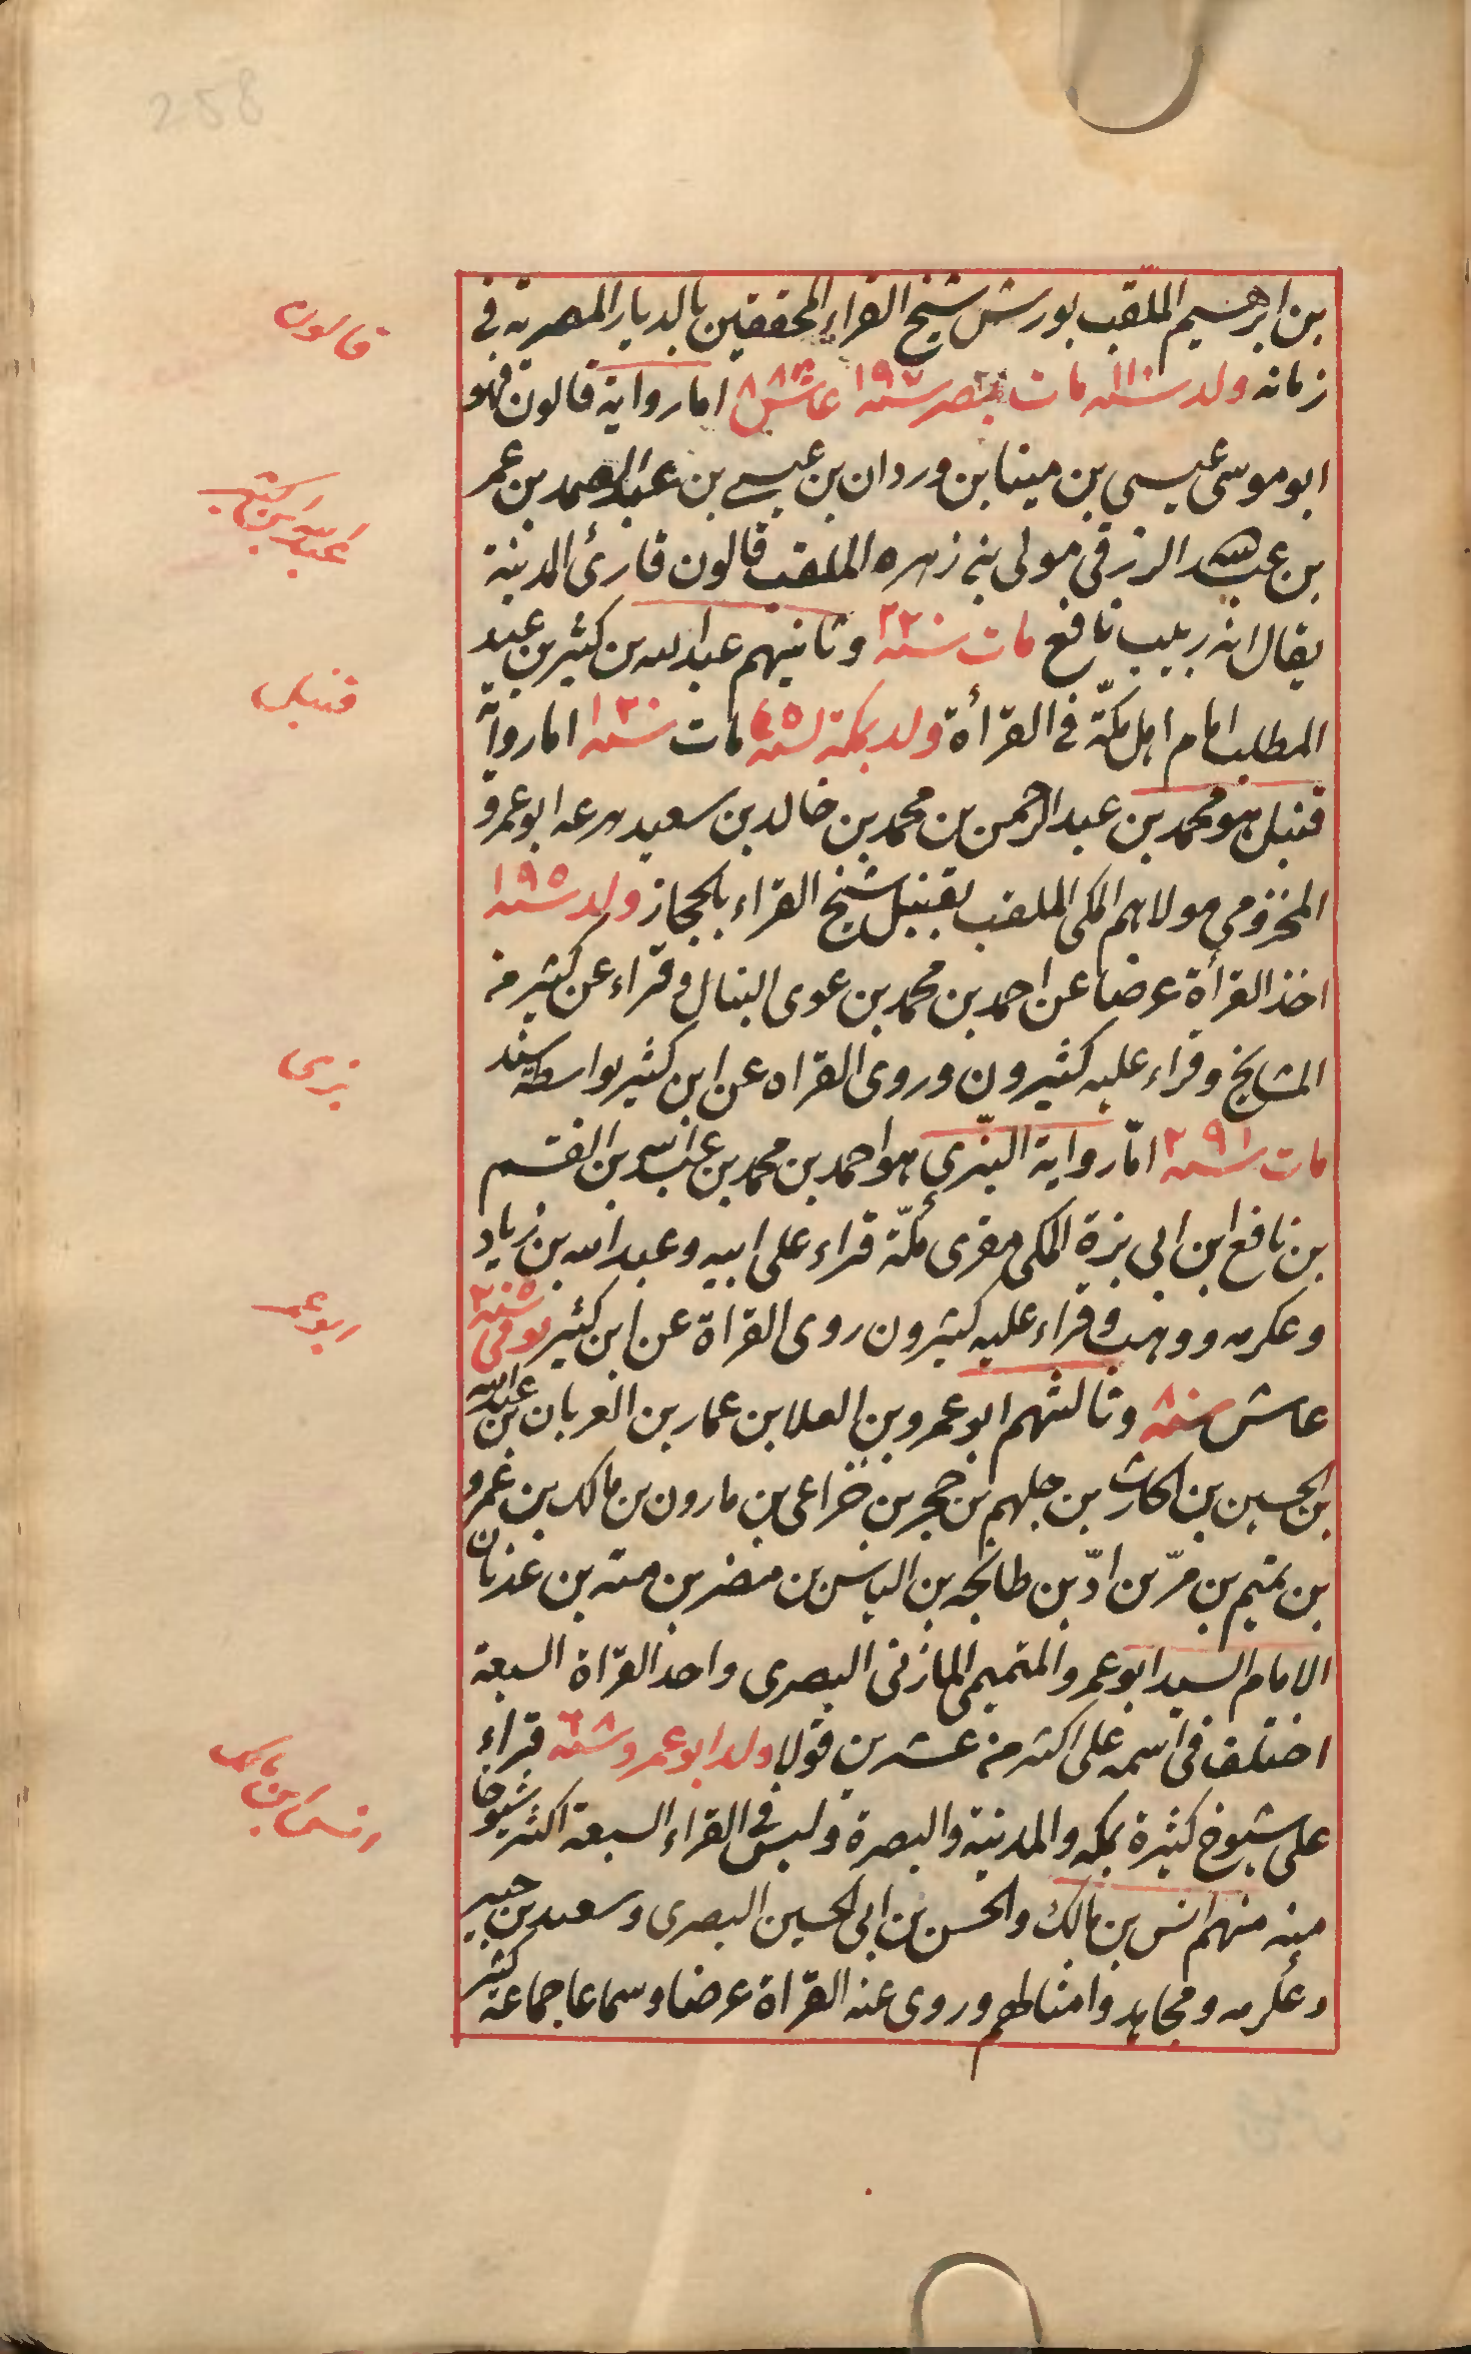 258
بن ابرهيم الملقب بورش شيخ القراء المحققين بالديار المصرية فى
قالون
زمانه ولد سنه ١١٠ مات بمصر سنه ١٩٧ عاش ٨٨ اما رواية قالون فهو
ابو موسى عيسى بن مينا بن وردان بن عيسى بن عبد الصمد بن عمر
عبد الله ابن كثير
بن عبد الله الزرقى مولى بنى زهره الملقب قالون قارئ المدينة
يقال انه ربيب نافع مات سنه ٢٢٠ وثانيهم عبد الله بن كثير بن عبد
قنبل
المطلب امام اهل مكّة فى القرأة ولد بمكة سنه ٤٥ مات سنه ١٢٠ اما رواية
قنبل هو محمد بن عبد الرحمن بن محمد بن خالد بن سعيد ابو عمرو
المخزومي مولاهم المكى الملقب بقنبل شيخ القراء بالحجاز ولد سنه ١٩٥
اخذ القرأة عرضا عن احمد بن محمد بن عوى النبال وقراء عن كثير من
بزى
المشايخ وقراء عليه كثيرون وروى القراه عن ابن كثير بواسطة سند
مات سنه ٢٩١ امّا رواية البزّي هو احمد بن محمد بن عبد الله بن القسم
بن نافع ابن ابى بزة المكى مقرى مكّة قراء على ابيه وعبد الله بن زياد
ابو عمر
وعكرمه ووهب وقراء عليه كثيرون روى القراة عن ابن كثير توفى سنه ٢٥٠
عاش سنه ٨٠ وثالثهم ابو عمرو بن العلا بن عمار بن العريان بن عبد الله
بن الحسين بن الحارث بن جلهم بن حجر بن خزاعى بن مارون بن مالك بن عمرو
بن تميم بن مرّ بن ادّ بن طابخه بن الياس بن مضر بن معد بن عدنان
الامام السيد ابو عمرو المتميمى المازنى البصرى واحد القرّاة السبعة
اختلف فى اسمه على اكثر من عشرين قولا ولد ابو عمرو سنه ٦٨ قراء
انس ابن مالك
على شيوخ كثيرة بمكه والمدينة والبصرة وليس فى القراء السبعة اكثر شيوخا
منه منهم انس بن مالك والحسن بن ابى الحسين البصرى وسعيد بن جبير
وعكرمه ومجاهد وامثالهم وروى عنه القراة عرضا وسماعا جماعة كثير